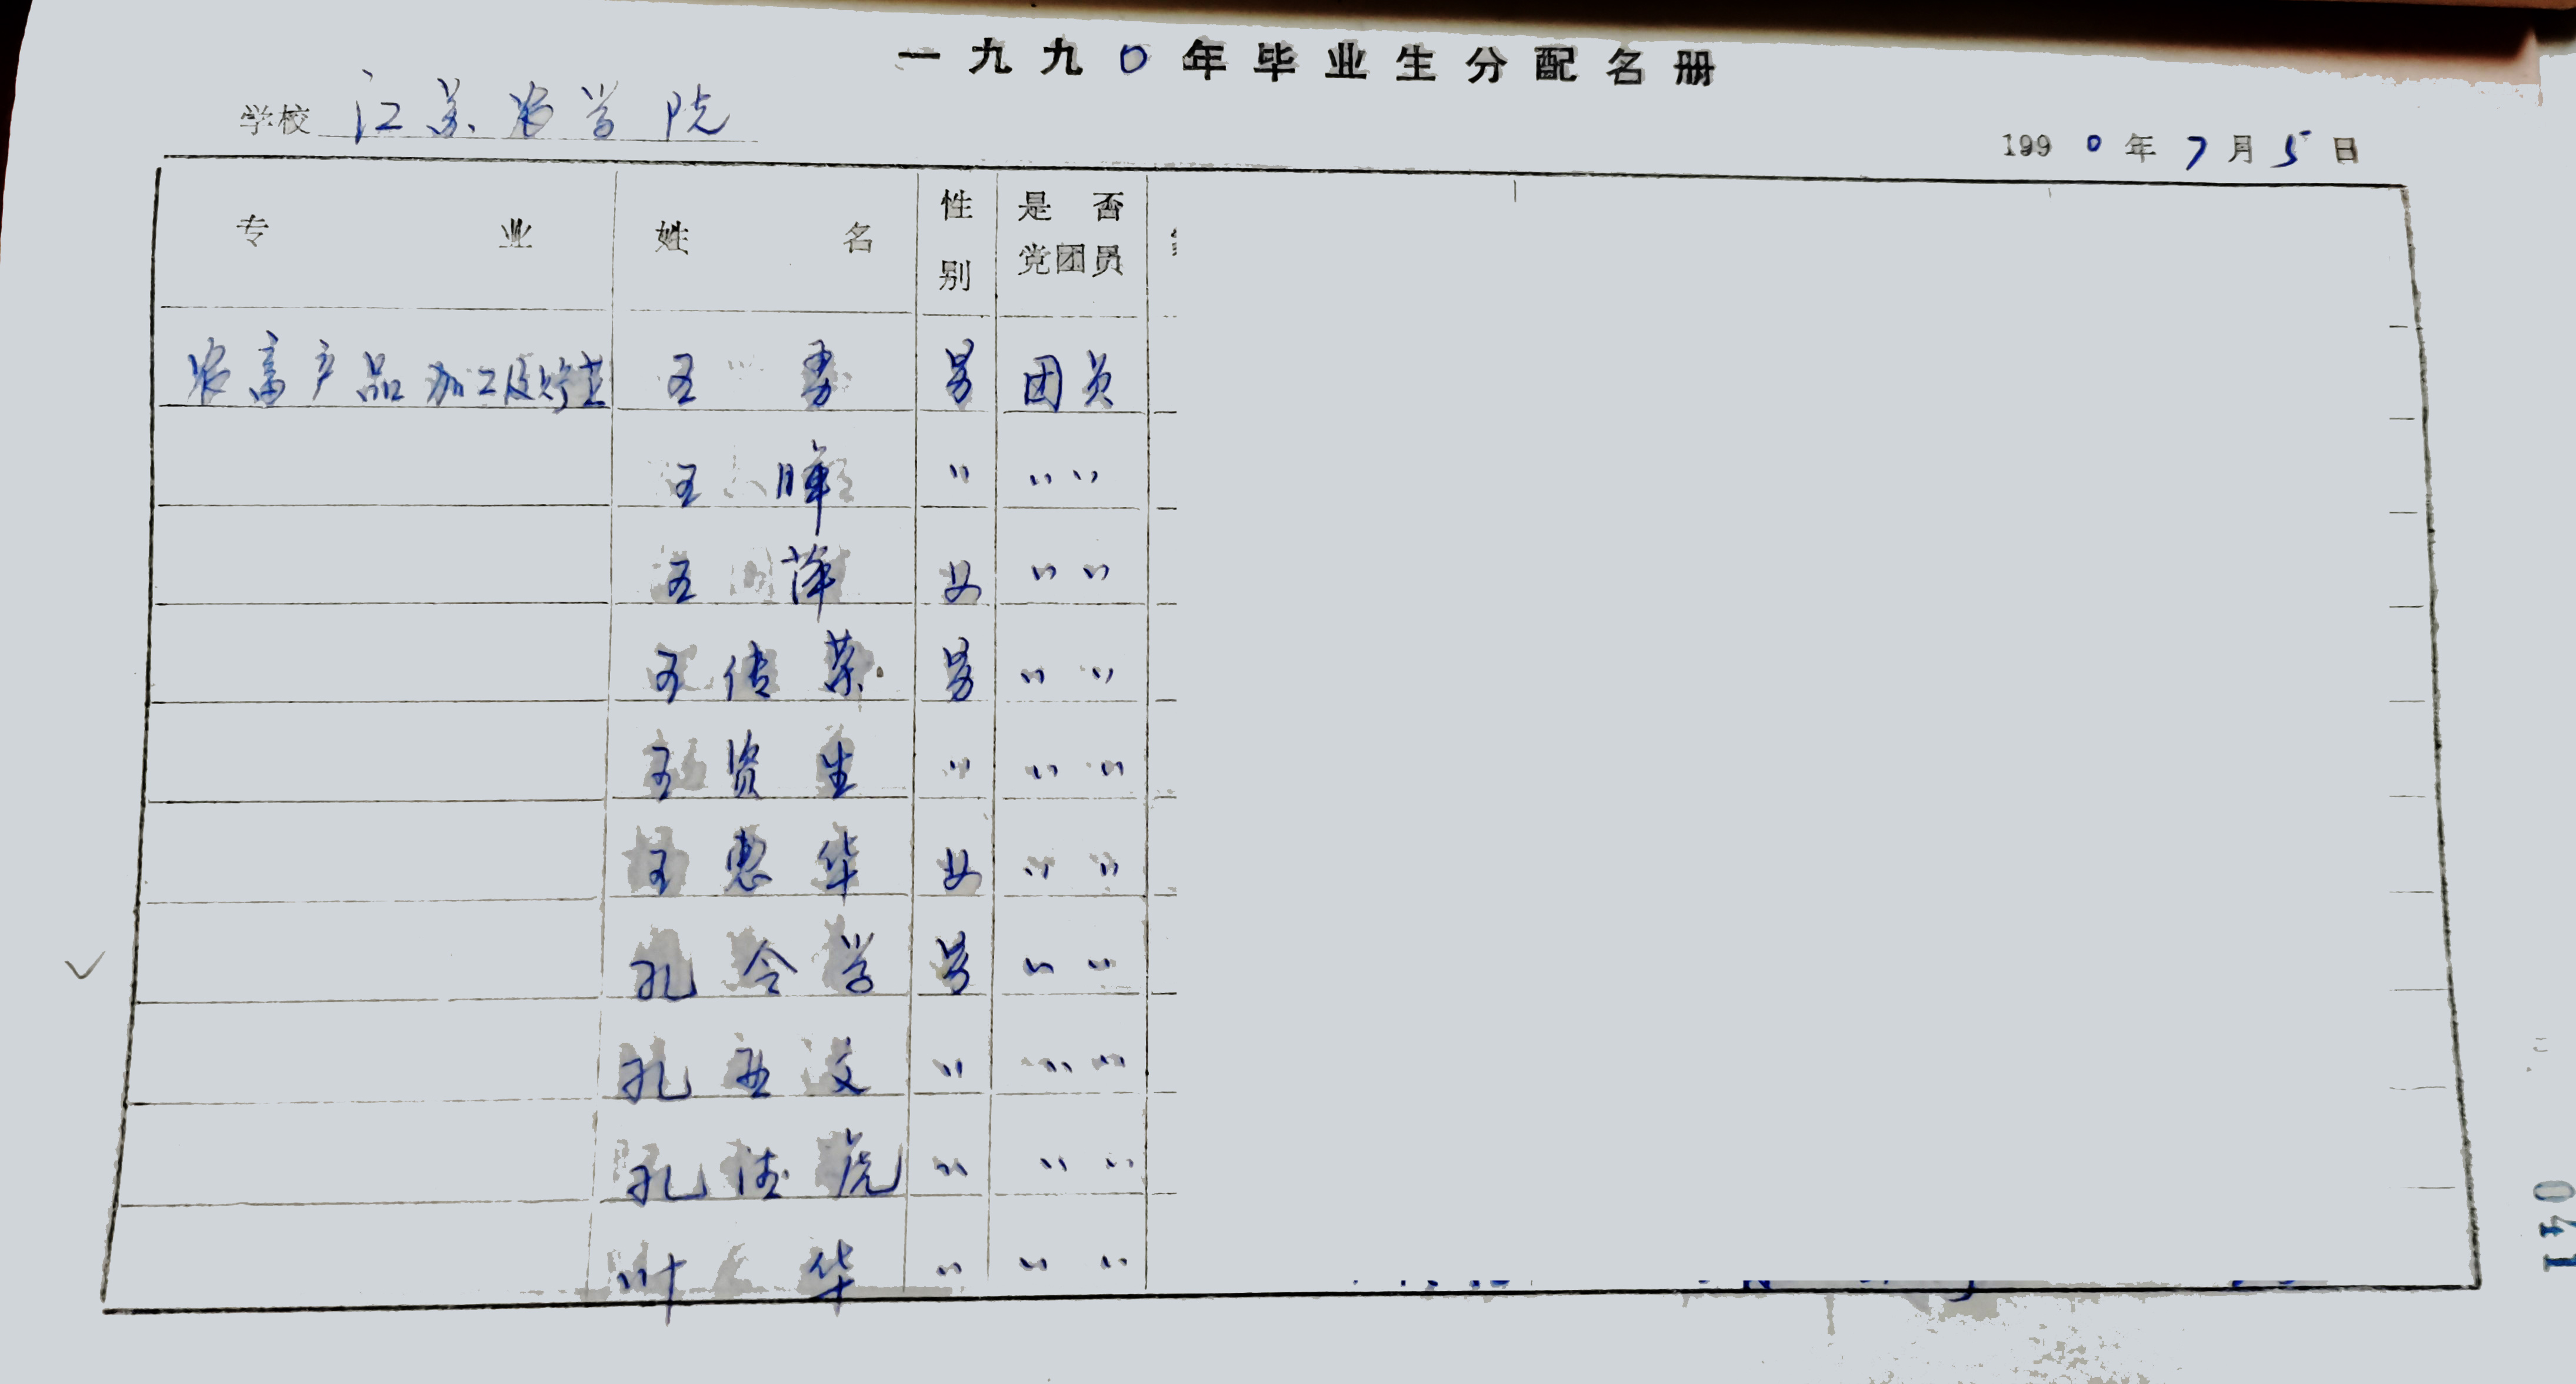 一九九0年毕业生分配名册
学校 江苏农学院
1990年7月5日
专业 姓名 性别 是否党团员
农畜产品加工及贮芷 王勇 男 团员
王晖 〃 〃〃
王萍 女 〃〃
王传荣 男 〃〃
王资生 〃 〃〃
王惠华 女 〃〃
孔令学 男 〃〃
孔亚文 〃 〃〃
孔德虎 〃 〃〃
叶华 〃 〃〃
041